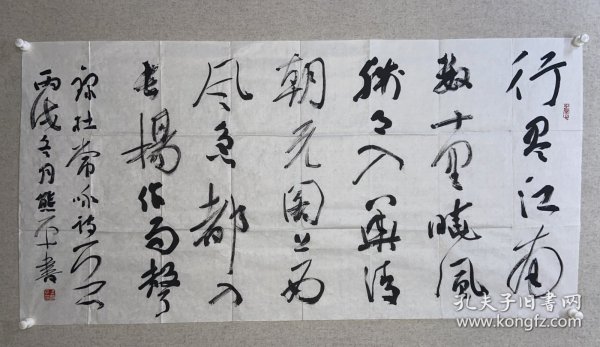 行尽江南
数十里晓风
残月入华清
朝元阁上西
风急都入
长杨作雨声
录杜常咏诗一首
丙戌冬月熊一丁书
孔夫子旧书网
www.kongfz.com